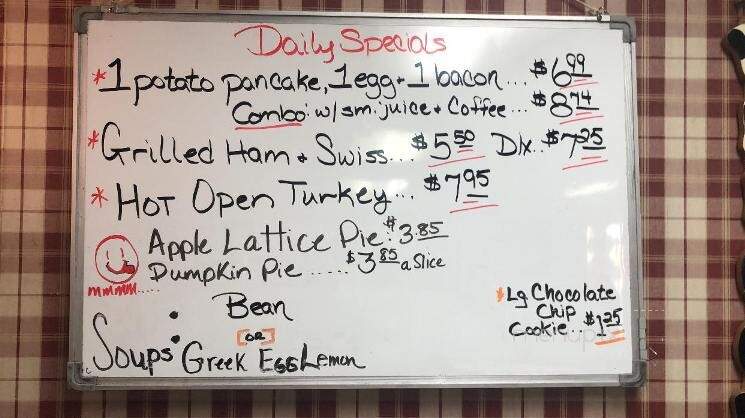 Daily Specials
*1 potato pancake, 1 egg + 1 bacon... $6.99
Combo: w/ sm. juice + Coffee... $8.74
*Grilled Ham + Swiss... $5.50 Dlx.. $7.25
*Hot Open Turkey... $7.95
Apple Lattice Pie: $3.85
Pumpkin Pie ..... $3.85 a Slice
mmmm.....
Bean
[OR]
Soups: Greek Egg Lemon
*Lg Chocolate
Chip
Cookie.. $1.25